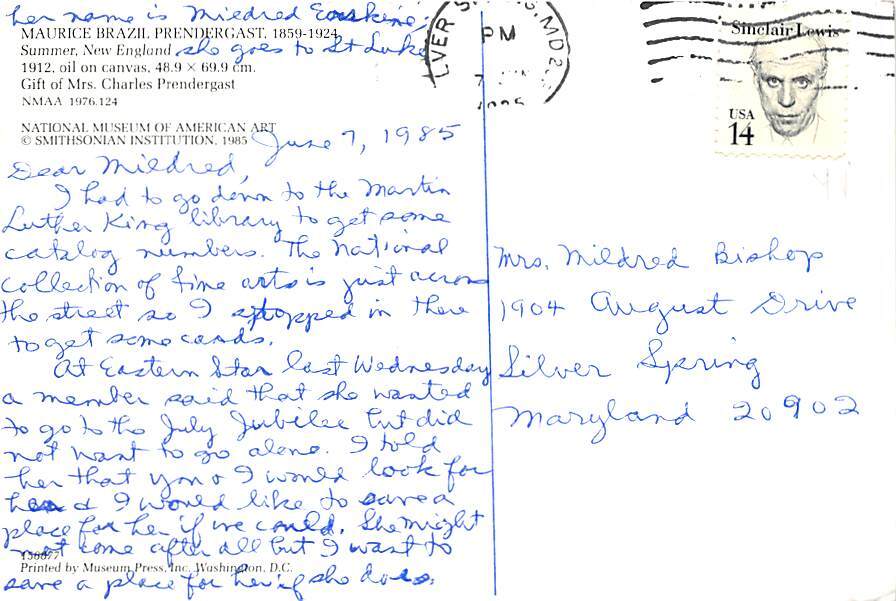 her name is Mildred Erskine;
MAURICE BRAZIL PRENDERGAST, 1859-1924
Summer, New England
she goes to St Luke
1912, oil on canvas, 48.9 × 69.9 cm.
Gift of Mrs. Charles Prendergast
NMAA 1976.124
NATIONAL MUSEUM OF AMERICAN ART
© SMITHSONIAN INSTITUTION, 1985
June 7, 1985
Dear Mildred,
I had to go down to the Martin
Luther King library to get some
catalog numbers. The national
collection of fine arts is just across
the street so I stopped in there
to get some cards.
At Eastern Star last Wednesday
a member said that she wanted
to go to the July Jubilee but did
not want to go alone. I told
her that you & I would look for
her & I would like to save a
place for her if we could. She might
not come after all but I want to
save a place for her if she does.
Printed by Museum Press, Inc. Washington, D.C.
LVER S MD 2
PM
7
1985
Sinclair Lewis
USA
14
Mrs. Mildred Bishop
1904 August Drive
Silver Spring
Maryland 20902